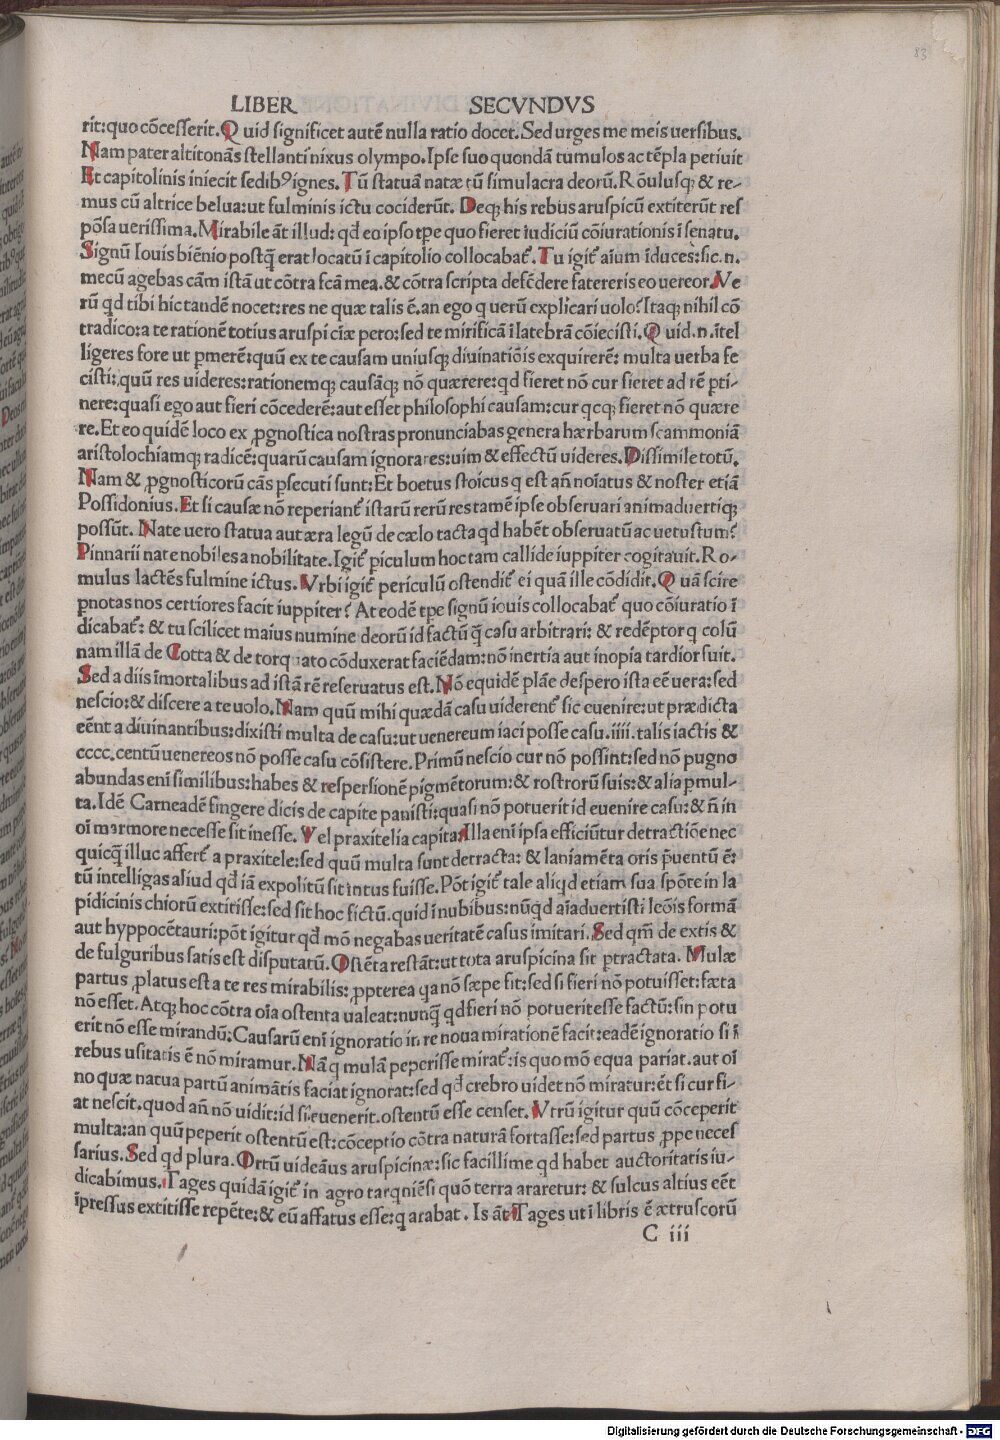 83
LIBER SECVNDVS
rit:quo cōcesserit.Q uid significet autē nulla ratio docet.Sed urges me meis uersibus.
Nam pater altitonās stellanti nixus olympo.Ipse suo quondā tumulos ac tēpla petiuit
Et capitolinis iniecit sedibꝰ ignes.Tū statuā natæ tū simulacra deorū.R ōulusq; & re-
mus cū altrice belua:ut fulminis ictu cociderūt. Deq; his rebus aruspicū extiterūt res
pōsa uerissima.Mirabile āt illud: qd eo ipso tꝑe quo fieret iudiciū cōiurationis ī senatu.
Signū Iouis biēnio postq̄ erat locatū ī capitolio collocabat̄. Tu igit̄ aīum īduces:sic.n.
mecū agebas cām istā ut cōtra fcā mea.& cōtra scripta defēdere fatereris eo uereor.Ve
rū qd tibi hic tandē nocet:res ne quæ talis ē.an ego q uerū explicari uolo?Itaq; nihil cō
tradico:a te rationē totius aruspiciæ pero:sed te mirificā ī latebrā cōiecisti.Q uid.n.ītel
ligeres fore ut ꝑmerē:quū ex te causam uniusq; diuinatiōis exquirerē: multa uerba fe
cisti:,quū res uideres:rationemq; causāq; nō quærere:qd fieret nō cur fieret ad rē ꝑti-
nere:quasi ego aut fieri cōcederē:aut esset philosophi causam:cur qcq; fieret nō quære
re.Et eo quidē loco ex ꝓgnostica nostras pronunciabas genera hærbarum scammoniā
aristolochiamq; radicē:quarū causam ignorares:uim & effectū uideres. Dissimile totū.
Nam & ꝓgnosticorū cās ꝑsecuti sunt:Et boetus stoicus q est añ noīatus & noster etiā
Possidonius.Et si causæ nō reperiant̄ istarū rerū res tamē ipse obseruari animaduertiq;
possūt. Nate uero statua aut æra legū de cælo tacta qd habēt obseruatū ac uetustum?
Pinnarii nate nobiles a nobilitate.Igit̄ piculum hoc tam callide iuppiter cogitauit.R o-
mulus lactēs fulmine ictus. Vrbi igit̄ periculū ostendit̄ ei quā ille cōdidit.Q uā scire
ꝑnotas nos certiores facit iuppiter? At eodē tꝑe signū iouis collocabat̄ quo cōiuratio ī
dicabat̄: & tu scilicet maius numine deorū id factū q̄ casu arbitrari: & redēptor q colū
nam illā de Cotta & de torquato cōduxerat faciēdam:nō inertia aut inopia tardior fuit.
Sed a diis īmortalibus ad istā rē reseruatus est.Nō equidē plāe despero ista eē uera:sed
nescio:& discere a te uolo.Nam quū mihi quædā casu uiderent̄ sic euenire:ut prædicta
eēnt a diuinantibus:dixisti multa de casu:ut uenereum iaci posse casu.iiii.talis iactis &
cccc.centū uenereos nō posse casu cōsistere.Primū nescio cur nō possint:sed nō pugno
abundas enī similibus:habes & respersionē pigmētorum:& rostrorū suis:& alia ꝑmul-
ta.Idē Carneadē fingere dicis de capite panisti:quasi nō potuerit id euenire casu:& ñ in
oī marmore necesse sit inesse. Vel praxitelia capita.Illa enī ipsa efficiūtur detractiōe nec
quicq̄ illuc affert̄ a praxitele:sed quū multa sunt detracta: & laniamēta oris p̄uentū ē:
tū intelligas aliud qd iā expolitū sit intus fuisse.Pōt igit̄ tale aliqd etiam sua spōte in la
pidicinis chiorū extitisse:sed sit hoc fictū.quid ī nubibus:nūqd aīaduertisti leōis formā
aut hyppocētauri:pōt igitur qd mō negabas ueritatē casus imitari.Sed qm̄ de extis &
de fulguribus satis est disputatū.Ostēta restāt:ut tota aruspicina sit ꝑtractata. Mulæ
partus ꝓlatus est a te res mirabilis: ꝓpterea qa nō sæpe fit:sed si fieri nō potuisset:fæta
nō esset. Atq; hoc cōtra oīa ostenta ualeat:nunq̄ qd fieri nō potuerit esse factū:sin potu
erit nō esse mirandū:Causarū enī ignoratio in re noua mirationē facit:eadē ignoratio si ī
rebus usitatis ē nō miramur. Nā q mulā peperisse mirat̄:is quo mō equa pariat.aut oī
no quæ natua partū animātis faciat ignorat:sed qd crebro uidet nō miratur:ēt si cur fi-
at nescit.quod añ nō uidit:id si euenerit.ostentū esse censet. Vtrū igitur quū cōceperit
multa:an quū peperit ostentū est:cōceptio cōtra naturā fortasse:sed partus ꝓpe neces
sarius.Sed qd plura.Ortū uideāus aruspicinæ:sic facillime qd habet auctoritatis iu-
dicabimus.Tages quidā igit̄ in agro tarqniēsi quō terra araretur: & sulcus altius eēt
īpressus extitisse repēte:& eū affatus esse:q arabat. Is āt Tages ut ī libris ē ætruscorū
C iii
Digitalisierung gefördert durch die Deutsche Forschungsgemeinschaft - DFG